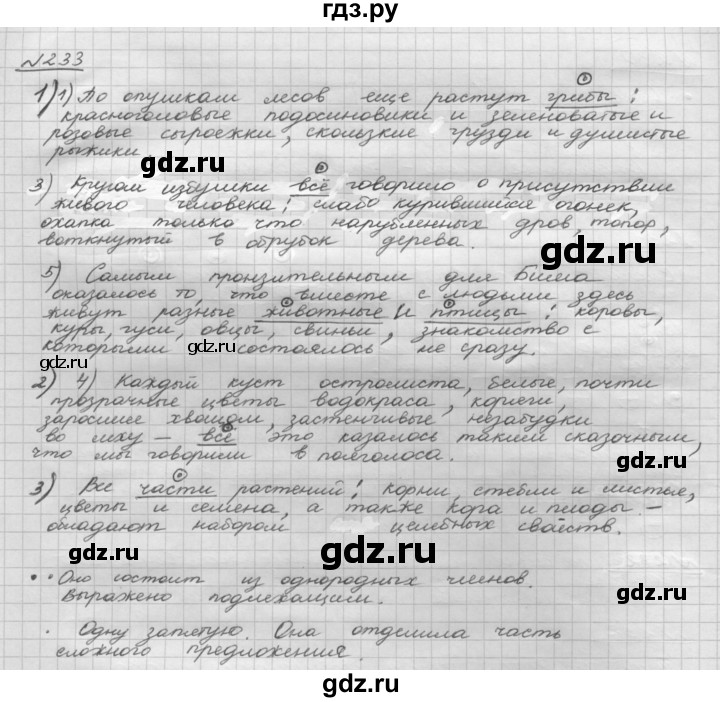 гдз.ру
№233
1) 1) По опушкам лесов еще растут грибы:
красноголовые подосиновики и зеленоватые и
розовые сыроежки, скользкие грузди и душистые
рыжики
gdz.ru
3) Кругом избушки всё говорило о присутствии
живого человека: слабо курившийся огонек,
охапка только что нарубленных дров, топор,
воткнутый в обрубок дерева.
gdz.ru
5) Самым пронзительным для Бима
оказалось то, что вместе с людьми здесь
живут разные животные и птицы: коровы,
куры, гуси, овцы, свиньи, знакомство с
которыми состоялось не сразу.
gdz.ru
gdz.ru
2) 4) Каждый куст остролиста, белые, почти
прозрачные цветы водокраса, коряги,
заросшие хвощом, застенчивые незабудки
во мху – всё это казалось таким сказочным,
что мы говорили в полголоса.
gdz.ru
3) Все части растений: корни, стебли и листья,
цветы и семена, а также кора и плоды –
обладают набором целебных свойств.
gdz.ru
gdz.ru
· Оно состоит из однородных членов.
Выражено подлежащим.
gdz.ru
· Одну запятую. Она отделила часть
сложного предложения.
gdz.ru
gdz.ru